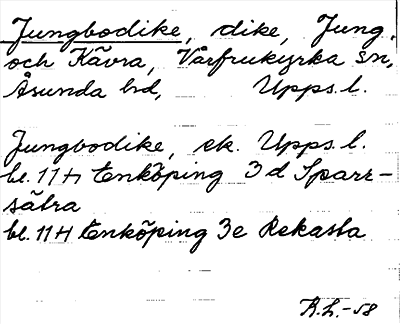 Jungbodike, dike, Jung.
och Kävra, Vårfrukyrka sn,
Åsunda hd, Upps. l.
Jungbodike, ek. Upps. l.
bl. 11H Enköping 3d Sparr-
sätra
bl. 11H Enköping 3e Rekasta
R.L.-58